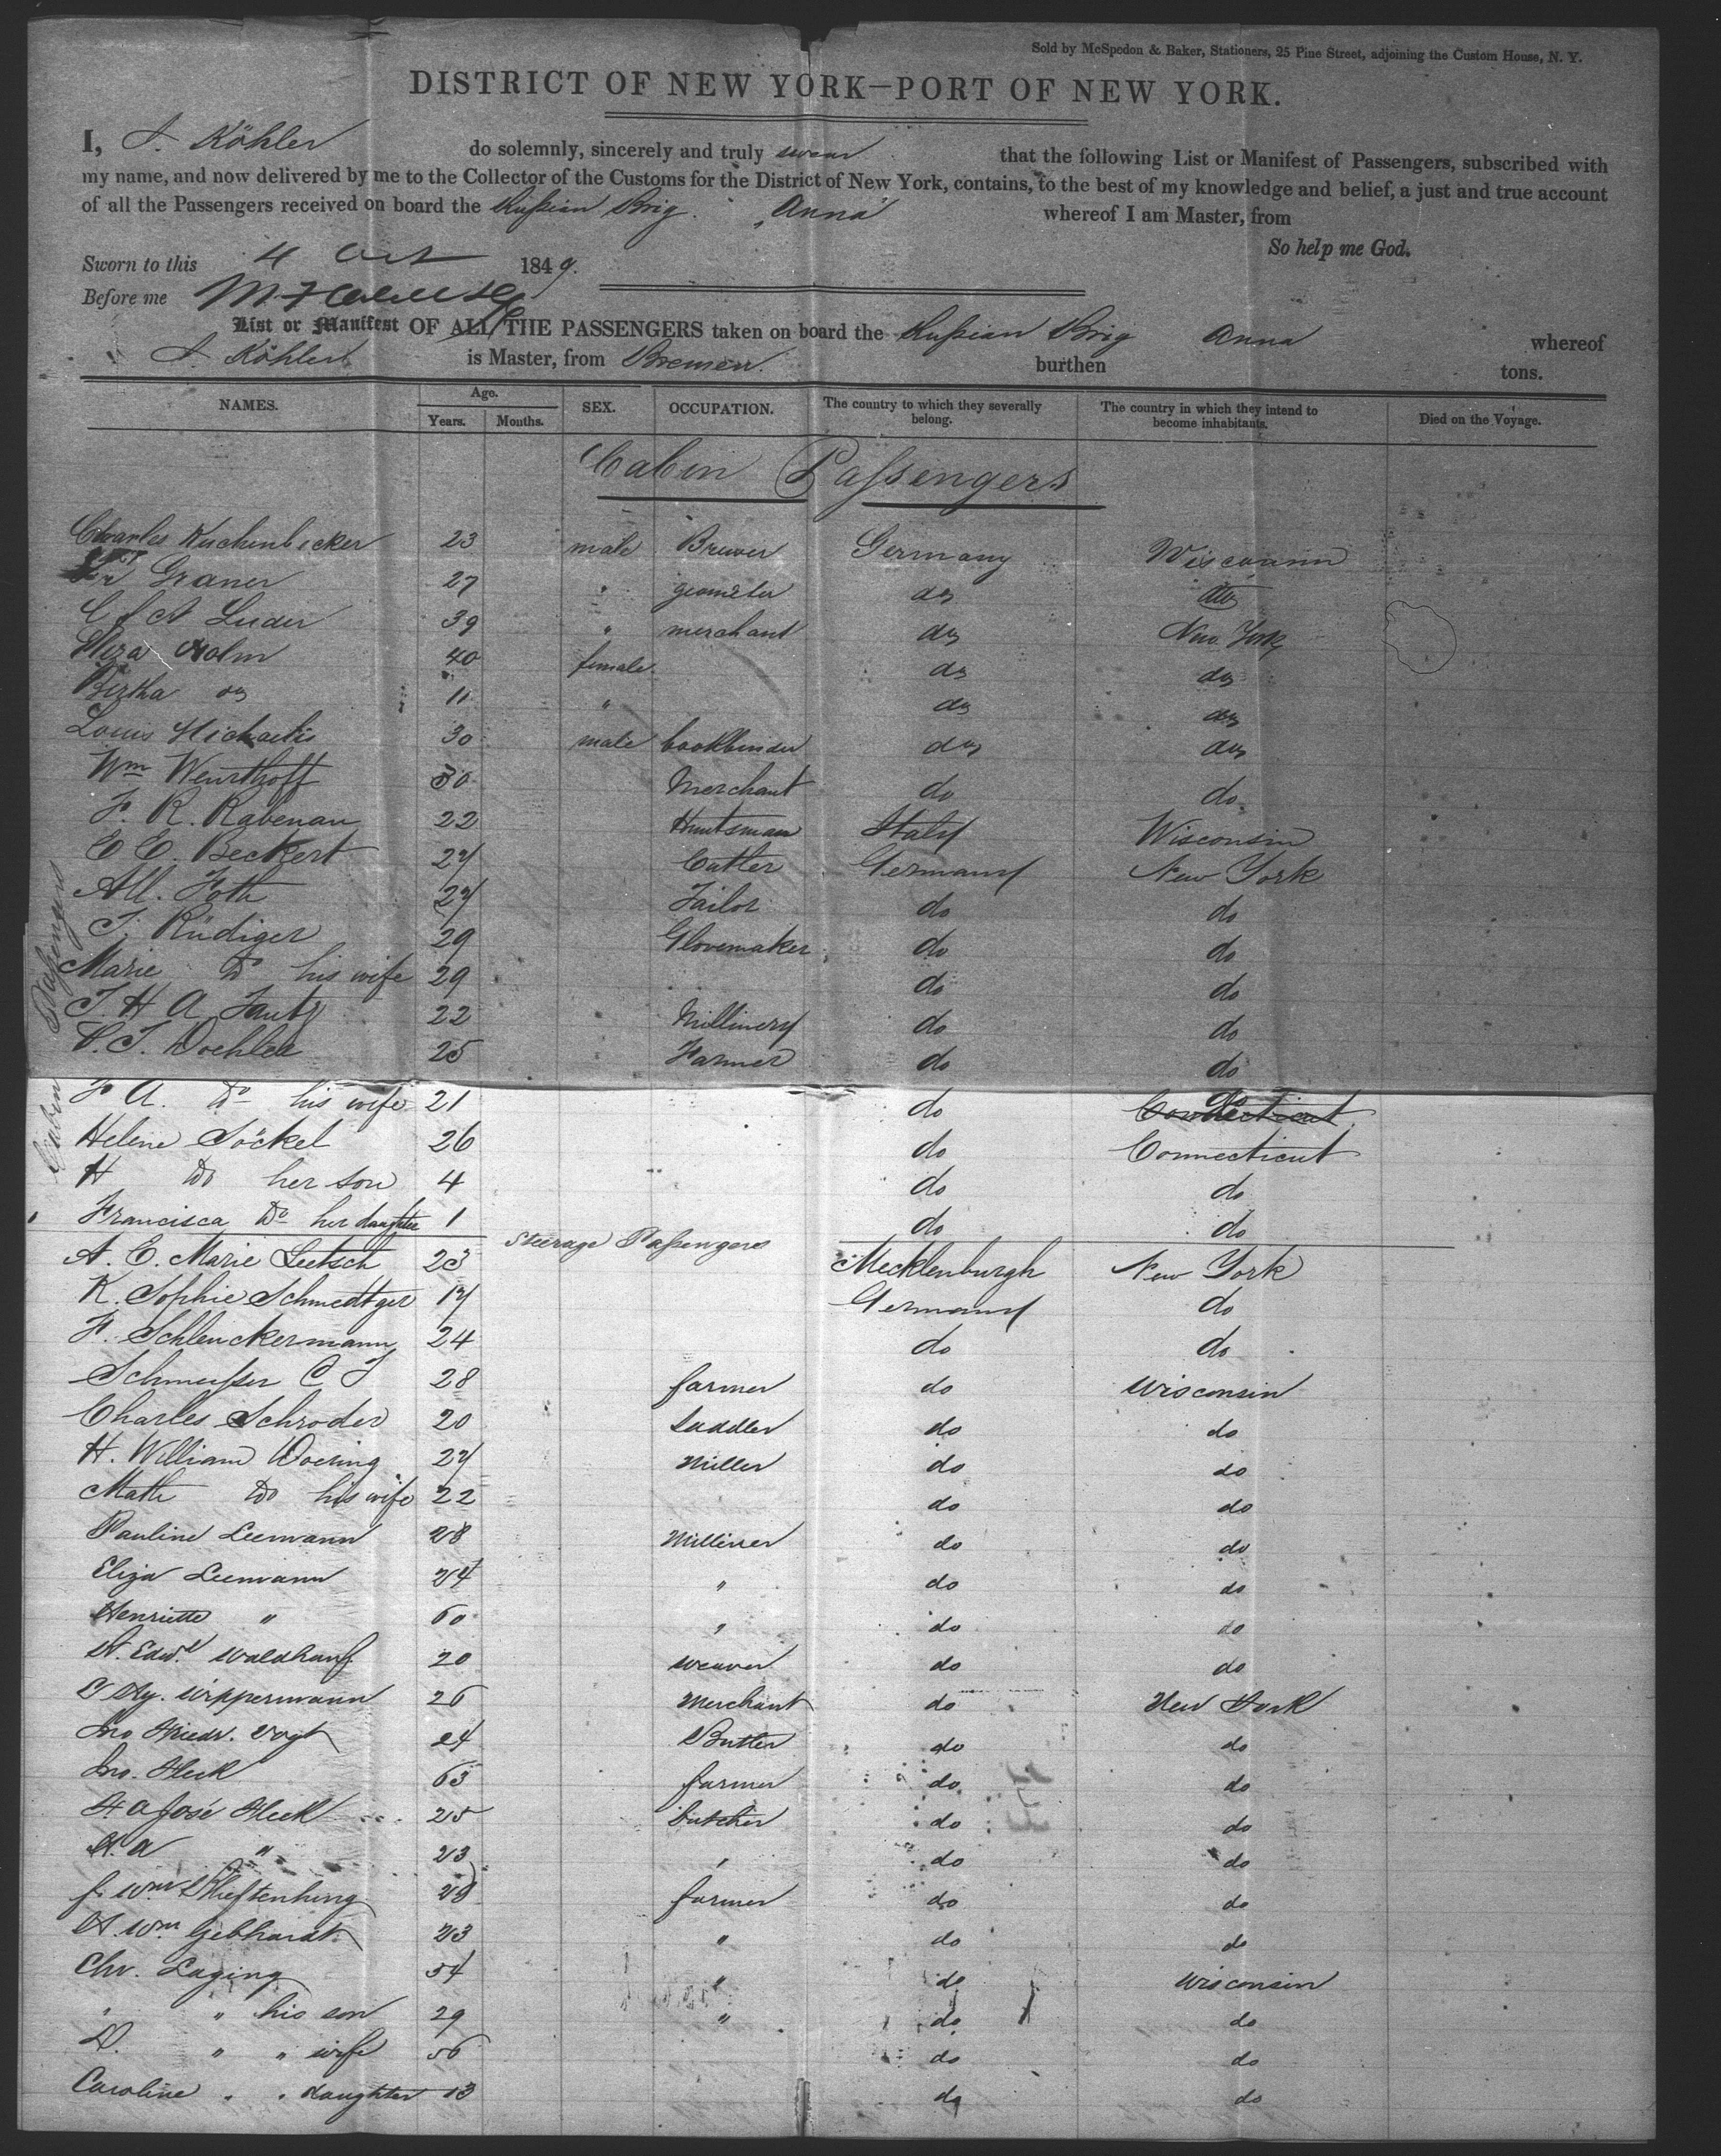 Sold by McSpedon & Baker, Stationers, 25 Pine Street, adjoining the Custom House, N. Y.
DISTRICT OF NEW YORK—PORT OF NEW YORK.
I, J. Köhler do solemnly, sincerely and truly swear that the following List or Manifest of Passengers, subscribed with
my name, and now delivered by me to the Collector of the Customs for the District of New York, contains, to the best of my knowledge and belief, a just and true account
of all the Passengers received on board the Russian Brig. "Anna" whereof I am Master, from
So help me God.
Sworn to this 4 Oct 1849.
Before me
List or Manifest OF ALL THE PASSENGERS taken on board the Russian Brig Anna whereof
J. Köhler is Master, from Bremen. burthen tons.
NAMES. Age. Years. Months. SEX. OCCUPATION. The country to which they severally belong. The country in which they intend to become inhabitants. Died on the Voyage.
Cabin Passengers
Charles Kuchenbecker 23 male Brewer Germany Wisconsin
Graner 27 " geometer do do
C f A Luder 39 " merchant do New York
Eliza Holm 40 female do do
Bertha do 11 " do do
Louis Michaelis 30 male bookbinder do do
Wm Wensthoff 30 Merchant do do
F. R. Rabenau 22 Huntsman Italy Wisconsin
E E. Beckert 27 Cutler Germany New York
All. Foth 27 Tailor do do
T. Rüdiger 29 Glovemaker do do
Marie Do his wife 29 do do
T. H A Fautz 22 Millinery do do
C. T. Doehler 25 Farmer do do
Cabin Passengers
F A. Do his wife 21 do Do
Helene Söckel 26 do Connecticut
H Do her son 4 do do
Francisca Do her daughter 1 do do
Steerage Passengers
A. C. Marie Leetsch 23 Mecklenburgh New York
K. Sophie Schmedtger 17 Germany do
F. Schlenckermann 24 do do
Schmeisser C T 28 farmer do Wisconsin
Charles Schroder 20 Saddler do do
H. William Doering 27 Miller do do
Math Do his wife 22 do do
Pauline Leemann 28 Milliner do do
Eliza Leemann 24 " do do
Henriette " 60 " do do
A. Edwd. Waldhauf 20 weaver do do
C Ag. Wippermann 26 Merchant do New York
Jno Friedr. Vogt 24 Butler do do
Jno. Fleck 63 farmer do do
H A José Fleck 25 butcher do do
A. A " 23 " do do
J. Wm Klieftenhung 28 farmer do do
A. Wm Gebhardt 23 " do do
Chr. Laging 54 " do Wisconsin
" " his son 29 " do do
D. " " wife 56 do do
Caroline " " daughter 13 do do